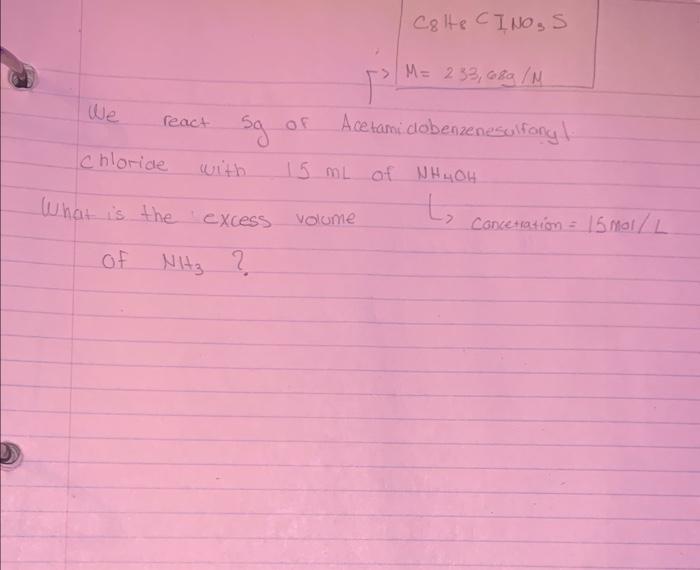 C8H8 ClNO3 S
M= 233,68g/M
We react 5g of Acetamidobenzenesulfonyl
chloride with 15 mL of NH4OH
What is the excess volume
Concetration = 15mol/L
of NH3 ?